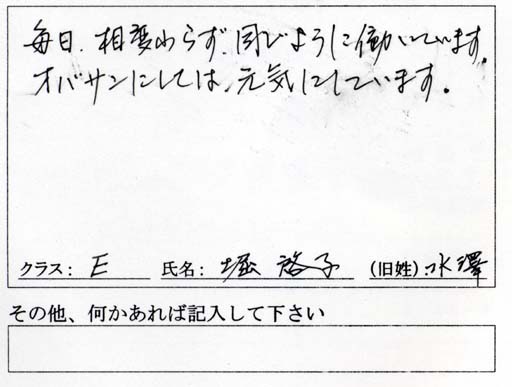 毎日、相変わらず、同じように働いています。
オバサンにしては、元気にしています。
クラス: E 氏名: 堀 啓子 (旧姓): 水澤
その他、何かあれば記入して下さい